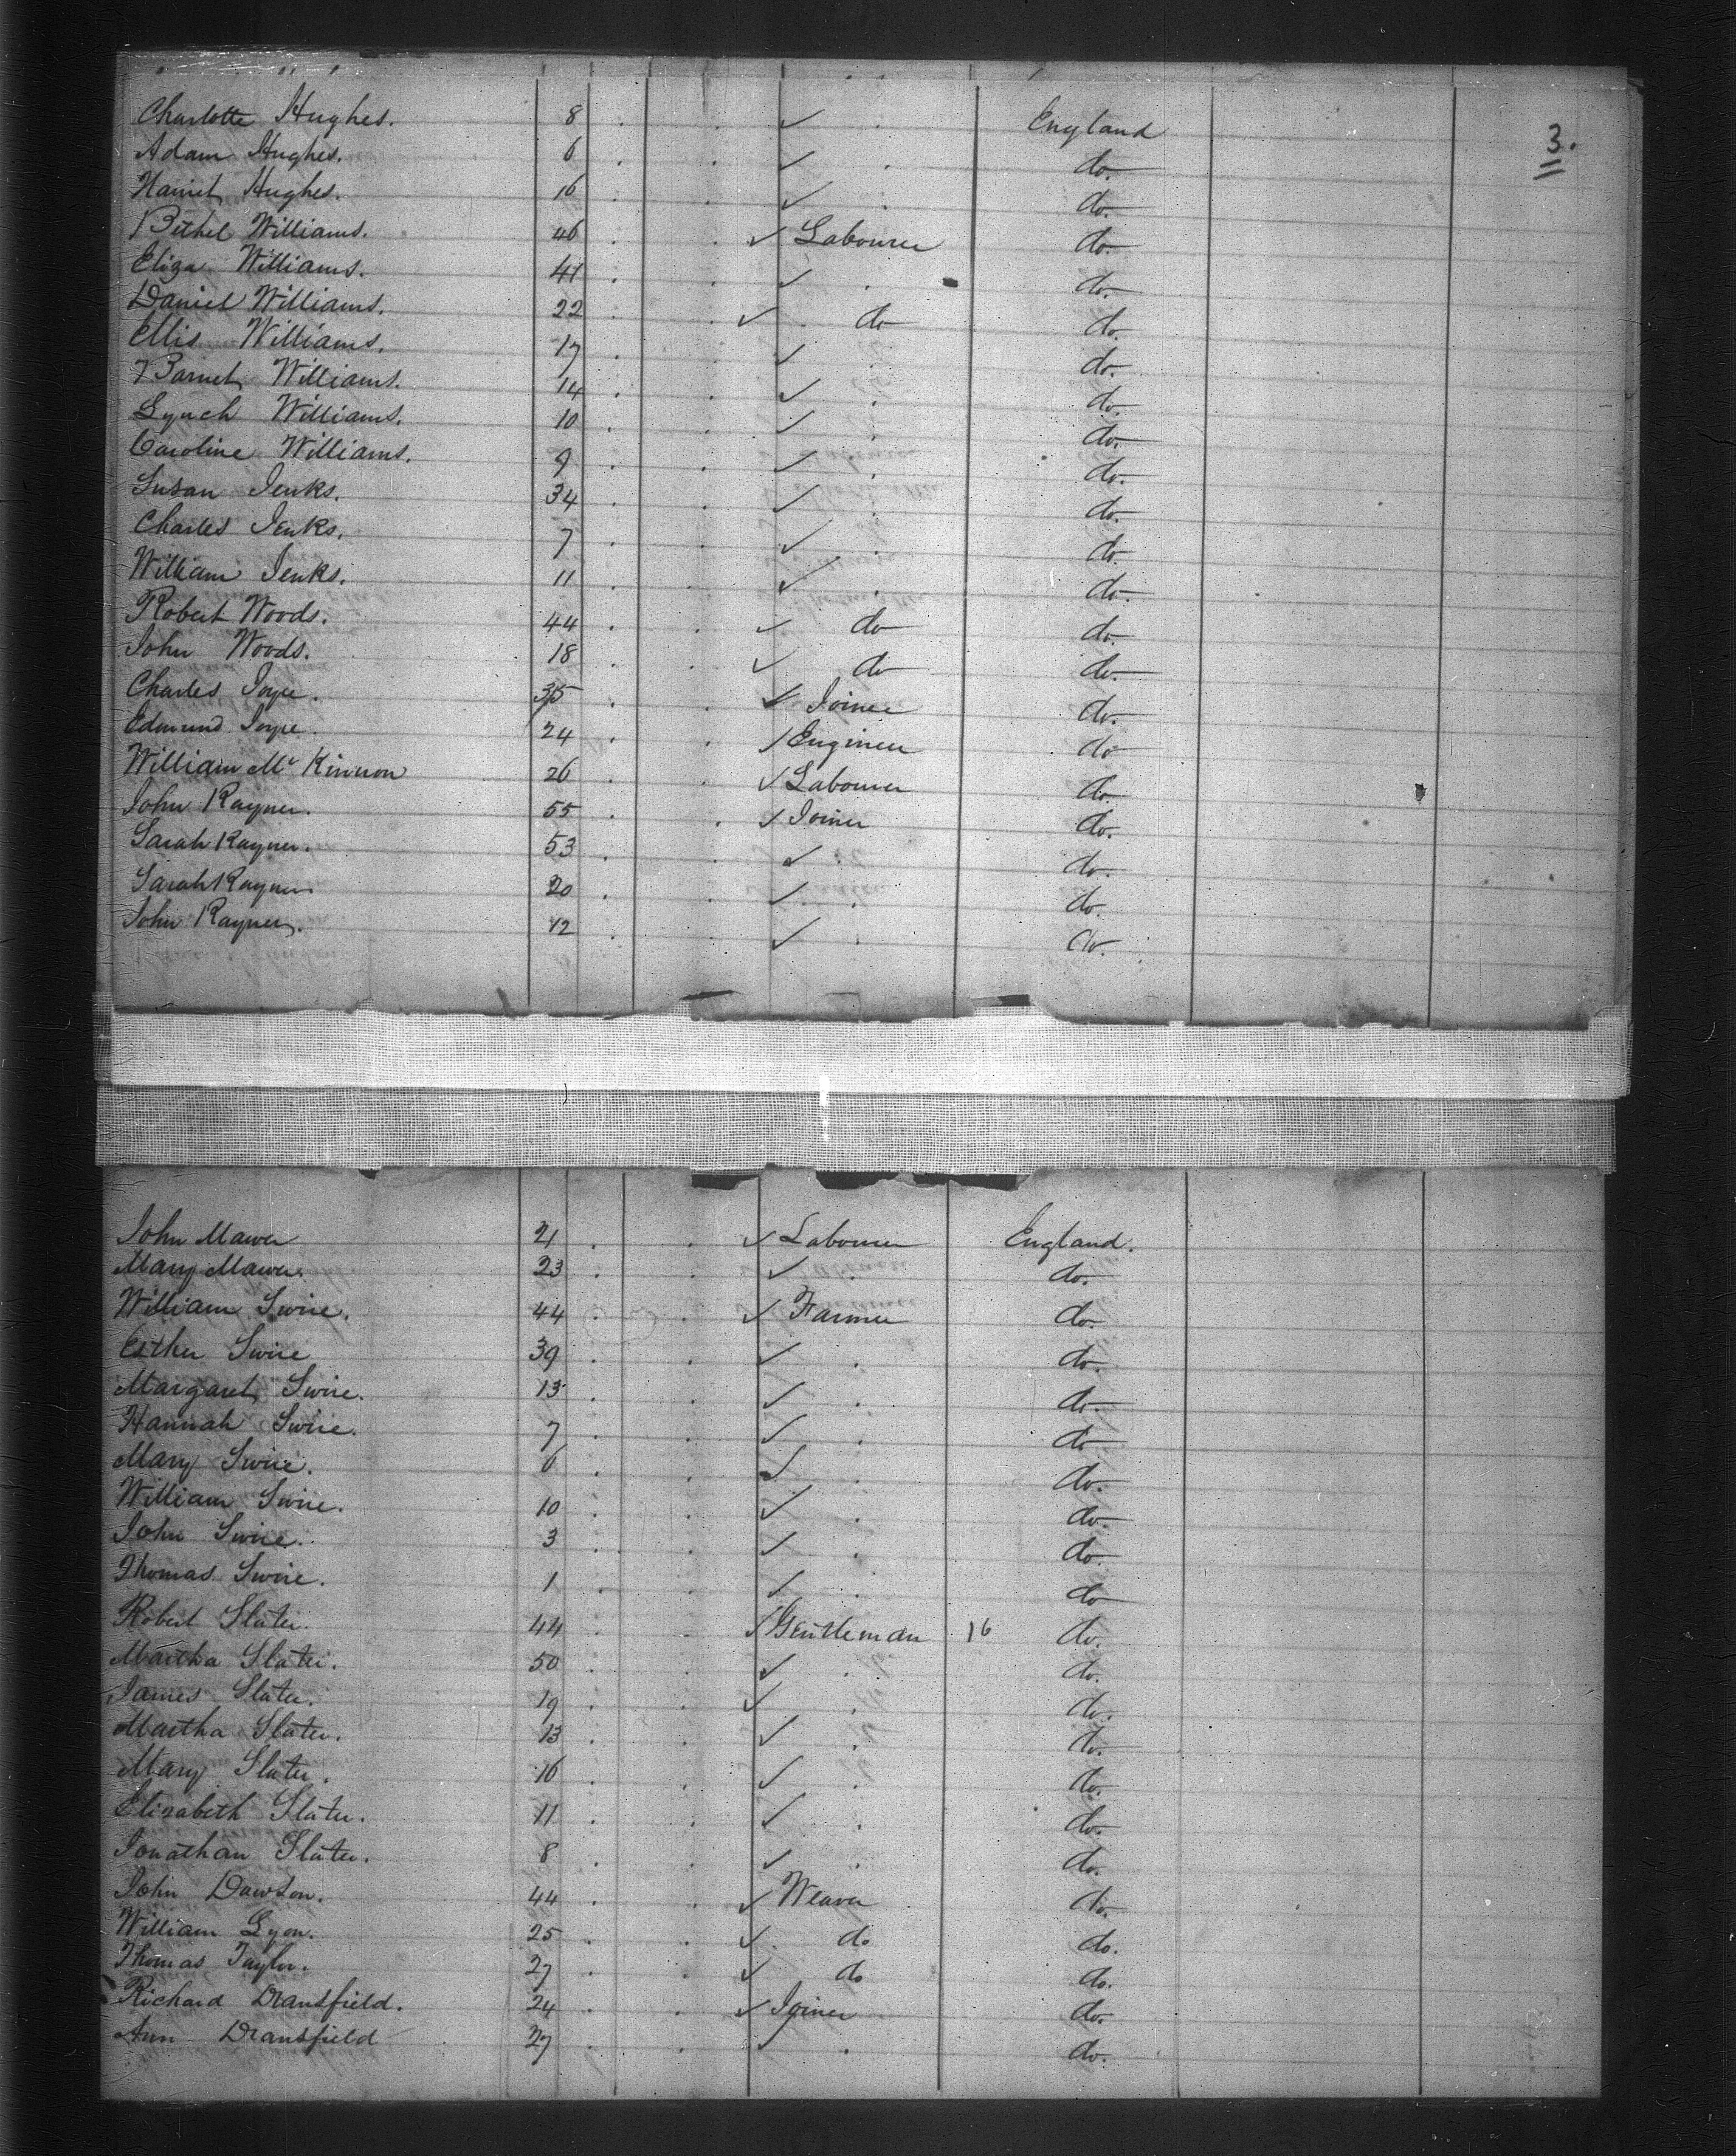 3.
Charlotte Hughes. 8 England
Adam Hughes. 6 do.
Harriet Hughes. 16 do.
Bethel Williams. 46 Labourer do.
Eliza Williams. 41 do.
Daniel Williams. 22 do do.
Ellis Williams. 17 do.
Barnet Williams. 14 do.
Lynch Williams. 10 do.
Caroline Williams. 9 do.
Susan Jenks. 34 do.
Charles Jenks. 7 do.
William Jenks. 11 do.
Robert Woods. 44 do do.
John Woods. 18 do do.
Charles 35 Joiner do.
Edmund 24 Engineer do
William McKinnon 26 Labourer do.
John Rayner. 55 Joiner do.
Sarah Rayner. 53 do.
Sarah Rayner 20 do.
John Rayner. 12 do.
John Mawer 21 Labourer England.
Mary Mawer. 23 do.
William Swire. 44 Farmer do.
Esther Swire 39 do.
Margaret Swire. 13 do.
Hannah Swire. 7 do
Mary Swire. 6 do.
William Swire. 10 do.
John Swire. 3 do.
Thomas Swire. 1 do
Robert Slater. 44 Gentleman 16 do.
Martha Slater. 50 do.
James Slater. 19 do.
Martha Slater. 13 do.
Mary Slater. 16 do.
Elizabeth Slater. 11 do.
Jonathan Slater. 8 do.
John Dawson. 44 Weaver do.
William Lyon. 25 do do.
Thomas Taylor. 27 do do.
Richard Dransfield. 24 Joiner do.
Ann Dransfield 27 do.